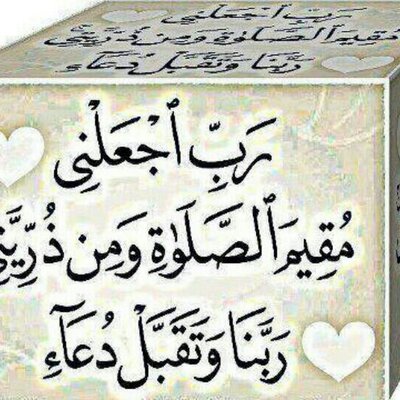 رَبِّ ٱجْعَلْنِى
مُقِيمَ ٱلصَّلَوٰةِ وَمِن ذُرِّيَّتِى
رَبَّنَا وَتَقَبَّلْ دُعَآءِ
رَبِّ ٱجْعَلْنِى
مُقِيمَ ٱلصَّلَوٰةِ وَمِن ذُرِّيَّتِى
رَبَّنَا وَتَقَبَّلْ دُعَآءِ